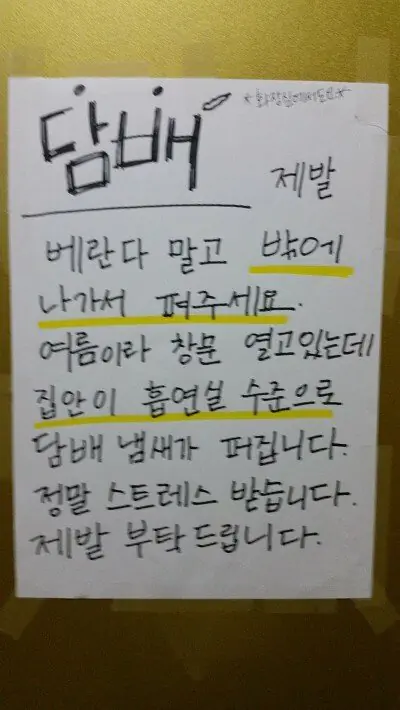 *화장실에서도요*
담배
제발
베란다 말고 밖에
나가서 펴주세요.
여름이라 창문 열고있는데
집안이 흡연실 수준으로
담배 냄새가 퍼집니다.
정말 스트레스 받습니다.
제발 부탁드립니다.